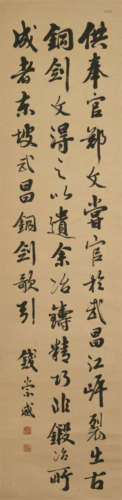 供奉官鄭文嘗官於武昌江岸裂出古
銅劍文得之以遺余冶鑄精巧非鍛冶所
成者東坡武昌銅劍歌引
錢崇威